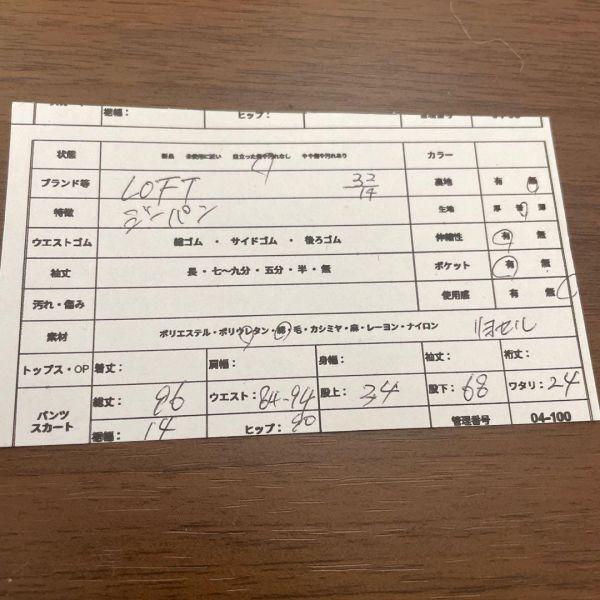 裾幅： ヒップ： 管理番号
状態 新品 未使用に近い 目立った傷や汚れなし やや傷や汚れあり カラー
ブランド等 LOFT 32/14 裏地 有 無
特徴 ジーパン 生地 厚 普 薄
ウエストゴム 総ゴム ・ サイドゴム ・ 後ろゴム 伸縮性 有 無
袖丈 長・七〜九分・五分・半・無 ポケット 有 無
汚れ・傷み 使用感 有 無
素材 ポリエステル・ポリウレタン・綿・毛・カシミヤ・麻・レーヨン・ナイロン リヨセル
トップス・OP 着丈： 肩幅： 身幅： 袖丈： 裄丈：
パンツ スカート 総丈： 96 ウエスト： 84-94 股上： 34 股下： 68 ワタリ： 24
裾幅： 14 ヒップ： 90 管理番号 04-100